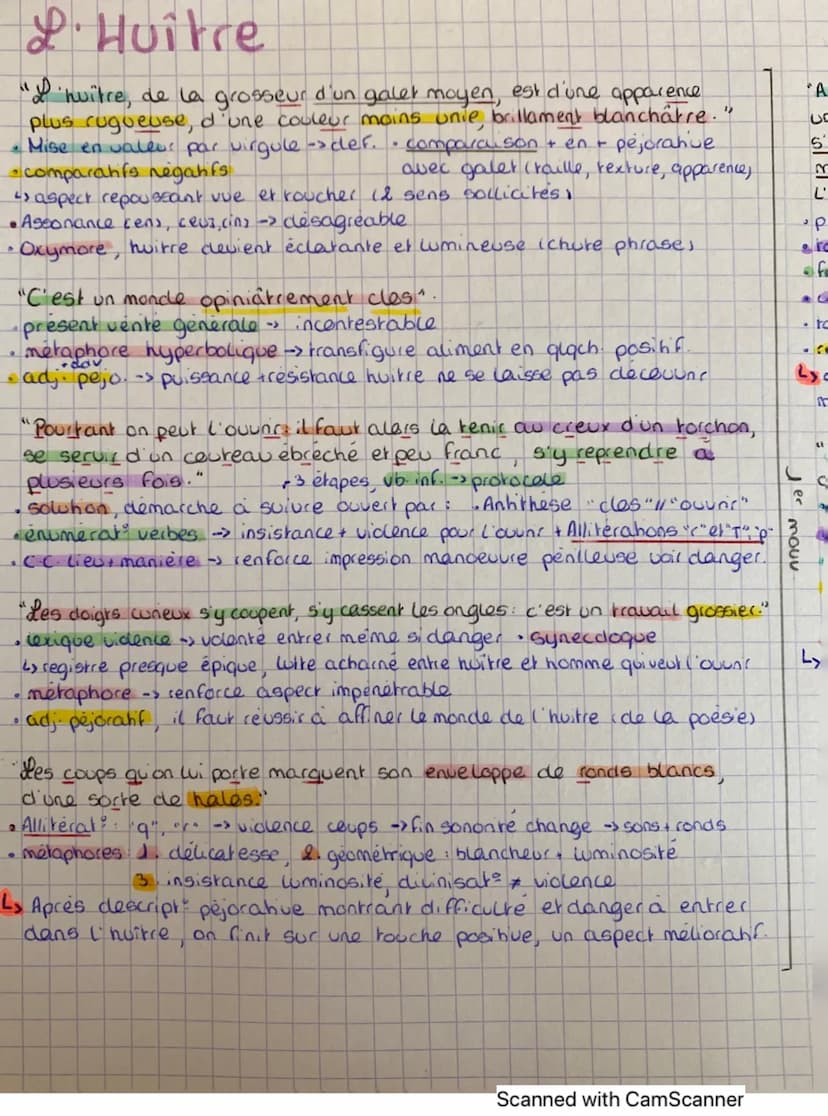 L'Huître
"L'huître, de la grosseur d'un galet moyen, est d'une apparence
plus rugueuse, d'une couleur moins unie, brillament blanchâtre."
• Mise en valeur par virgule -> def. • comparaison + en + péjorative
• comparatifs négatifs avec galet (taille, texture, apparence)
↳ aspect repoussant vue et toucher (2 sens sollicités)
• Assonance (ens, eus, ins) -> désagréable
• Oxymore, huitre devient éclatante et lumineuse (chute phrase)
"C'est un monde opiniâtrement clos".
• présent vérité générale -> incontestable
• métaphore hyperbolique -> transfigure aliment en qlqch. positif.
+ adv
• adj. pejo. -> puissance + résistance huitre ne se laisse pas découvrir
"Pourtant on peut l'ouvrir : il faut alors la tenir au creux d'un torchon,
se servir d'un couteau ébréché et peu franc, s'y reprendre à
plusieurs fois." 3 étapes, vb inf. -> protocole
• solution, démarche à suivre ouvert par : . Antithèse "clos" // "ouvrir"
• énumérat° verbes -> insistance + violence pour l'ouvrir + Allitérations "r" et "T", "p"
• C.C. lieu + manière -> renforce impression manoeuvre périlleuse voir danger.
"Les doigts curieux s'y coupent, s'y cassent les ongles : c'est un travail grossier."
• lexique violence -> volonté entrer même si danger • synecdoque
↳ registre presque épique, lutte acharné entre huître et homme qui veut l'ouvrir
• métaphore -> renforce aspect impénétrable
• adj. péjoratif, il faut réussir à affiner le monde de l'huitre (de la poésie)
"Les coups qu'on lui porte marquent son enveloppe de ronds blancs,
d'une sorte de halos."
• Allitérat° : "q", "r" -> violence coups -> fin sonorité change -> sons + ronds
• métaphores : 1. délicatesse, 2. géométrique : blancheur + luminosité
3. insistance luminosité, divinisat° ≠ violence
↳ Après descript° péjorative montrant difficulté et danger à entrer
dans l'huître, on finit sur une touche positive, un aspect mélioratif.
1er mouv
Scanned with CamScanner